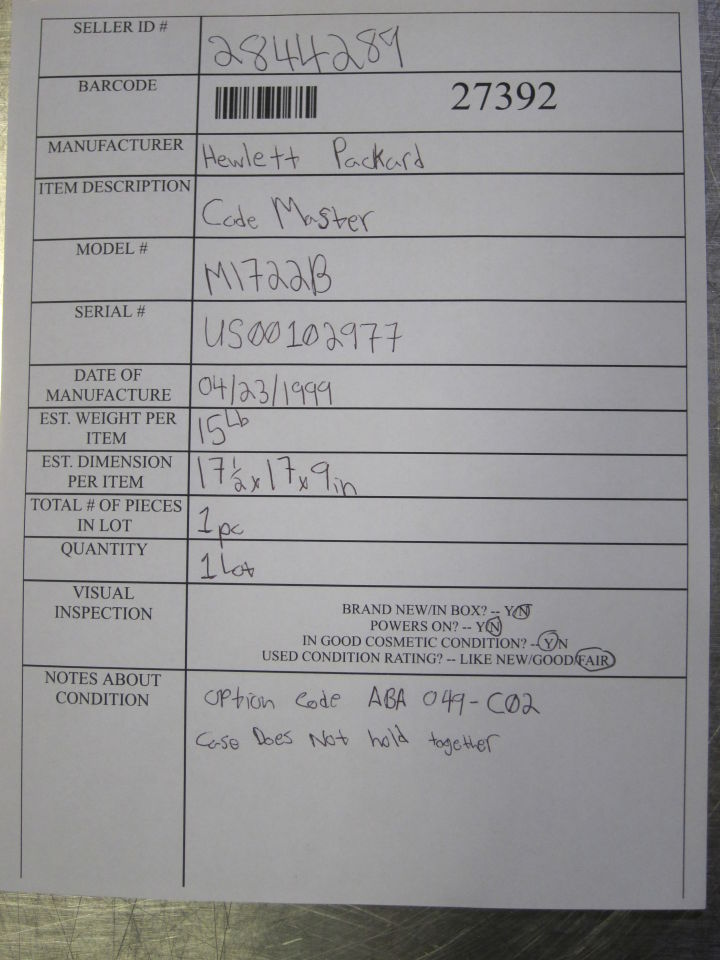 SELLER ID # 2844289
BARCODE 27392
MANUFACTURER Hewlett Packard
ITEM DESCRIPTION Code Master
MODEL # M1722B
SERIAL # US00102977
DATE OF MANUFACTURE 04/23/1999
EST. WEIGHT PER ITEM 15Lb
EST. DIMENSION PER ITEM 17 1/2 x 17 x 9 in
TOTAL # OF PIECES IN LOT 1 pc
QUANTITY 1 Lot
VISUAL INSPECTION
BRAND NEW/IN BOX? -- Y/N
POWERS ON? -- Y/N
IN GOOD COSMETIC CONDITION? -- Y/N
USED CONDITION RATING? -- LIKE NEW/GOOD/FAIR
NOTES ABOUT CONDITION
OPtion Code ABA 049-C02
Case Does Not hold together